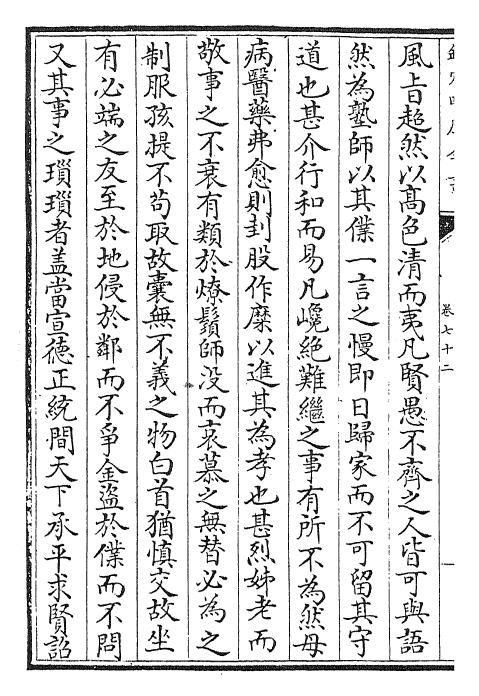 卷七十二
風旨超然以高色清而夷凡賢愚不齊之人皆可與語
然為塾師以其僕一言之慢即日歸家而不可留其守
道也甚介行和而易凡巉絶難繼之事有所不為然母
病醫藥弗愈則刲股作糜以進其為孝也甚烈姊老而
敬事之不衰有類於燎鬚師没而哀慕之無替必為之
制服孩提不茍取故囊無不義之物白首猶慎交故坐
有必端之友至於地侵於鄰而不爭金盜於僕而不問
又其事之瑣瑣者盖當宣徳正統間天下承平求賢詔